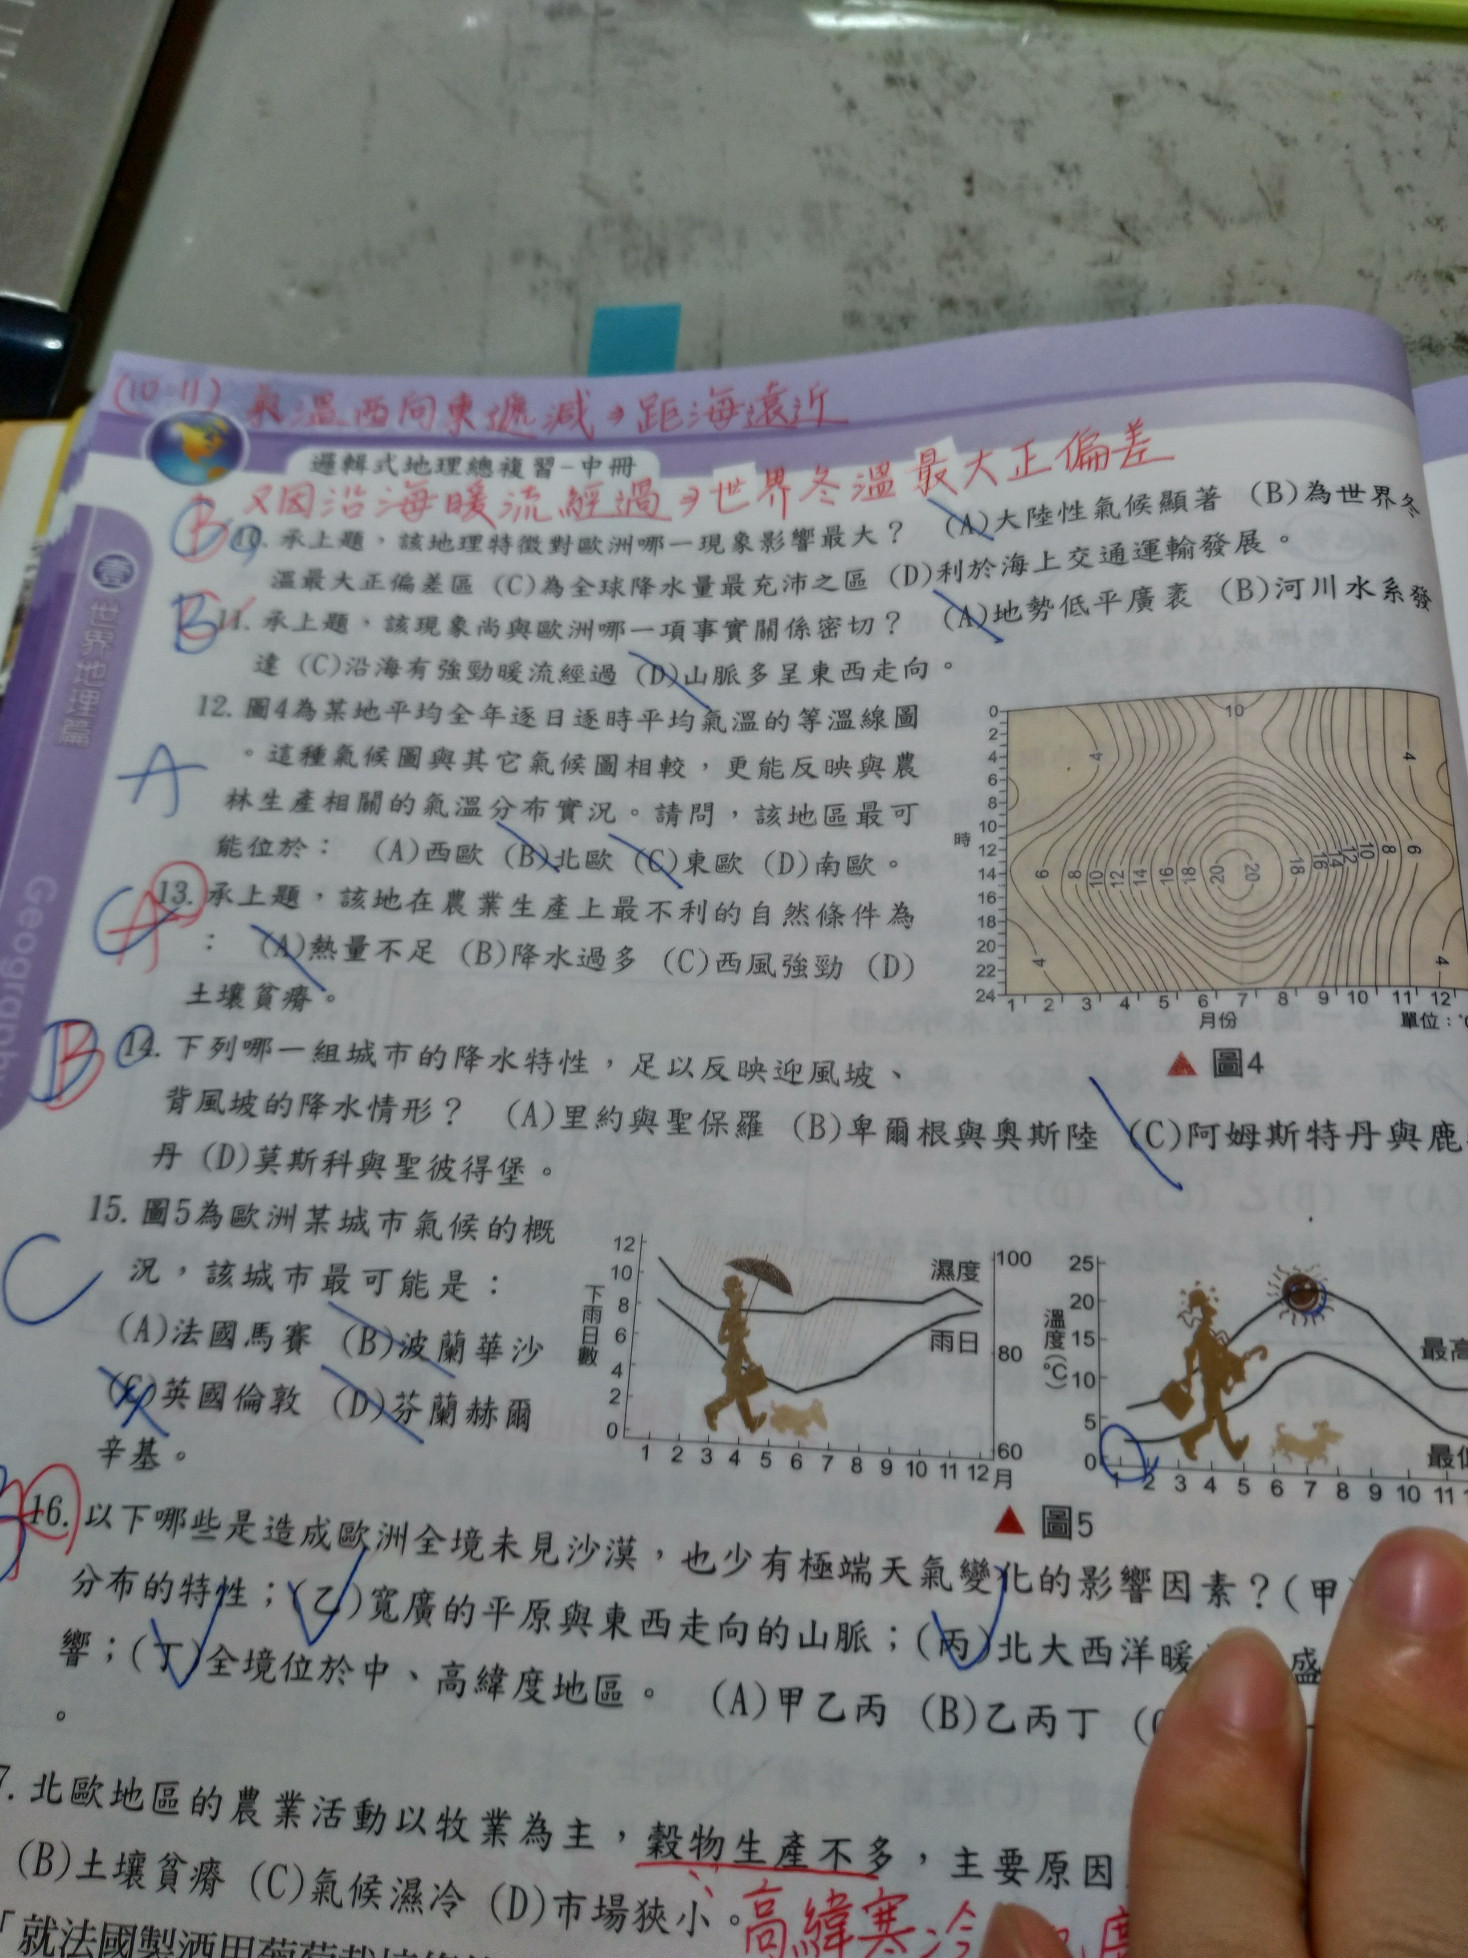 (10-11) 氣溫西向東遞減→距海遠近
邏輯式地理總複習-中冊
又因沿海暖流經過→世界冬溫最大正偏差
壹
世界地理篇
Geography
B 10. 承上題，該地理特徵對歐洲哪一現象影響最大？ (A)大陸性氣候顯著 (B)為世界冬
溫最大正偏差區 (C)為全球降水量最充沛之區 (D)利於海上交通運輸發展。
11. 承上題，該現象尚與歐洲哪一項事實關係密切？ (A)地勢低平廣袤 (B)河川水系發
達 (C)沿海有強勁暖流經過 (D)山脈多呈東西走向。
12. 圖4為某地平均全年逐日逐時平均氣溫的等溫線圖
。這種氣候圖與其它氣候圖相較，更能反映與農
A
林生產相關的氣溫分布實況。請問，該地區最可
能位於： (A)西歐 (B)北歐 (C)東歐 (D)南歐。
13. 承上題，該地在農業生產上最不利的自然條件為
A
： (A)熱量不足 (B)降水過多 (C)西風強勁 (D)
土壤貧瘠。
0 2 4 6 8 10 12 14 16 18 20 22 24
時
10
4 4
6 8 10 12 14 16 18 20 20 18 16 14 12 10 8 6
4 4
1 2 3 4 5 6 7 8 9 10 11 12
月份
單位：
▲ 圖4
B 14. 下列哪一組城市的降水特性，足以反映迎風坡、
背風坡的降水情形？ (A)里約與聖保羅 (B)卑爾根與奧斯陸 (C)阿姆斯特丹與鹿
丹 (D)莫斯科與聖彼得堡。
15. 圖5為歐洲某城市氣候的概
況，該城市最可能是：
C
(A)法國馬賽 (B)波蘭華沙
(C)英國倫敦 (D)芬蘭赫爾
辛基。
12 10 8 6 4 2 0
下雨日數
濕度
雨日
100 80 60
1 2 3 4 5 6 7 8 9 10 11 12 月
25 20 15 10 5 0
溫度(℃)
最高
最低
1 2 3 4 5 6 7 8 9 10 11
▲ 圖5
16. 以下哪些是造成歐洲全境未見沙漠，也少有極端天氣變化的影響因素？(甲)
分布的特性；(乙)寬廣的平原與東西走向的山脈；(丙)北大西洋暖 盛
響；(丁)全境位於中、高緯度地區。 (A)甲乙丙 (B)乙丙丁
。
7. 北歐地區的農業活動以牧業為主，穀物生產不多，主要原因
(B)土壤貧瘠 (C)氣候濕冷 (D)市場狹小。
高緯寒冷
「就法國製酒用葡萄栽培